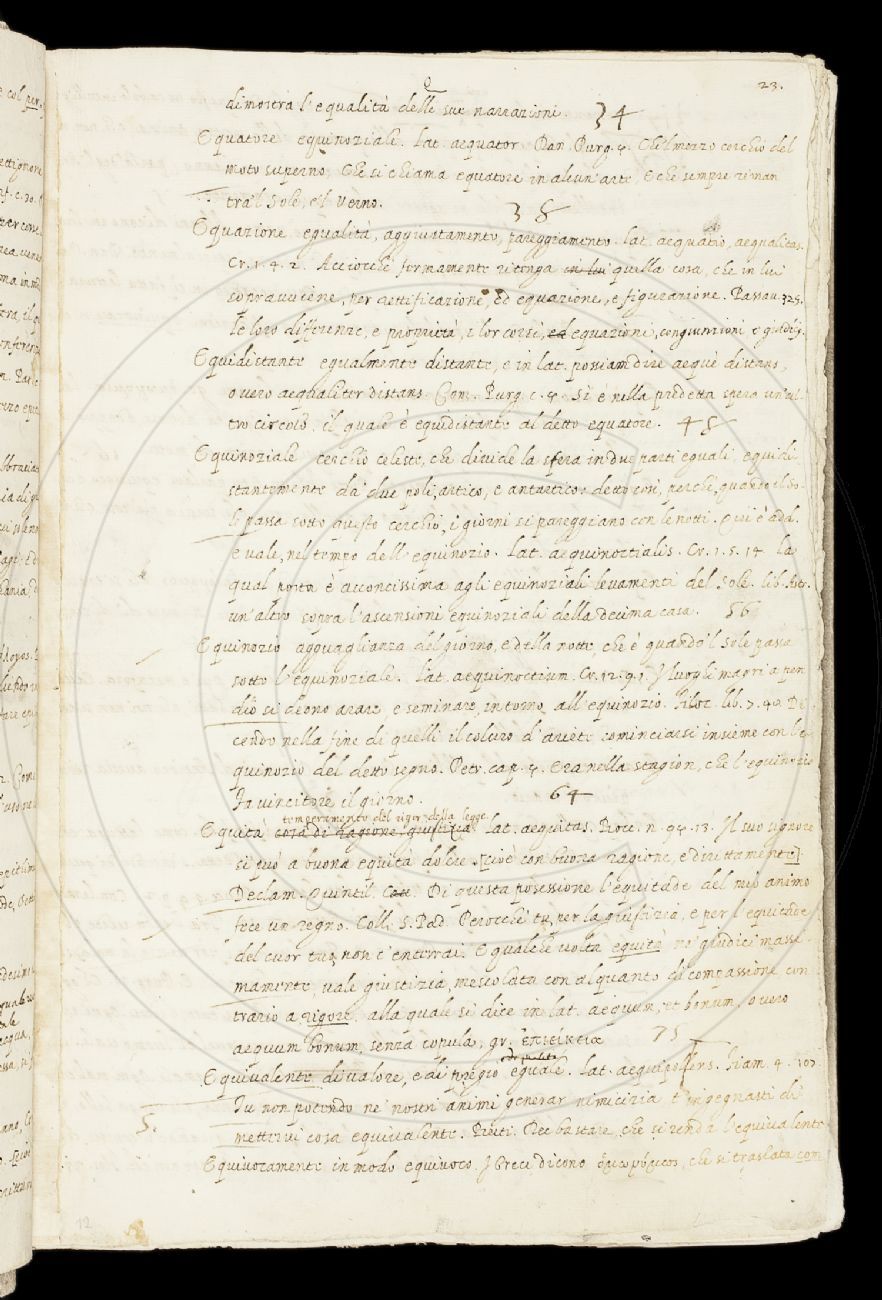 23.
dimostra l'equalità delle sue narrazioni. 34
Equatore equinoziale. Lat. aequator. Dan. Purg. 4. Che'l mezzo cerchio del
moto superno, Che si chiama equatore in alcun'arte, E che sempre riman
tra'l Sole, e'l Verno.
38
Equazione equalità, aggiustamento, pareggiamento. Lat. aequatio, aequalitas.
Cr. 1. 4. 2. Acciocchè fermamente ritenga in lui quella cosa, che in lui
sopravviene, per rettificazione, ed equazione, e figurazione. Passav. 325.
Le loro differenze, e proprietà, i lor corsi, ed equazioni, congiunzioni e
Equidistante egualmente distante, e in lat. possiam dire aequè distans,
overo aequaliter distans. Com. Purg. c. 4. Si è nella predetta spera un'al-
tro circolo, il quale è equidistante al detto equatore. 48
Equinoziale cerchio celeste, che divide la sfera in due parti equali equidi-
stantemente da' due poli, artico, e antartico: detto così, perchè, quando il So-
le passa sotto questo cerchio, i giorni si pareggiano con le notti. Qui è add.
e vale, nel tempo dell'equinozio. Lat. aequinoctialis. Cr. 1. 5. 14. la
qual porta è acconcissima agli equinoziali levamenti del Sole. lib. Astr.
un'altro sopra l'ascensioni equinoziali della decima casa. 56
Equinozio agguaglianza del giorno, e della notte, che è quando'l Sole passa
sotto l'equinoziale. Lat. aequinoctium. Cr. 12. 9. 1. I luoghi magri a pen-
dio si deono arare e seminare, intorno all'equinozio. Filoc. lib. 7. 40. Di-
cendo nella fine di quelli il coluro d'ariete cominciarsi insieme con l'e-
quinozio del detto segno. Petr. cap. 4. Era nella stagion, che l'equinozio
Fa vincitore il giorno. 64
temperamento del rigor della legge
Equità cosa di ragione, giustizia. Lat. aequitas. Bocc. n. 94. 13. Il suo signore
si può a buona equità dolere. [cioè con buona ragione, e dirittamente]
Declam. Quintil. Di questa posessione l'equitade del mio animo
fece un regno. Coll. S. Pad. Perocchè tu, per la giustizia, e per l'equitade
del cuor tuo, non c'enterrai. E qualche volta equità ne' giudici masse-
mamente, vale giustizia, mescolata con alquanto di compassione con-
trario a rigore, alla quale si dice in lat. aequum, et bonum, o vero
aequum bonum, senza copula, gr. ἐπιείκεια 75
Equivalente di valore, e di pregio equale. Lat. aequipollens. Fiam. 4. 107.
Tu non potendo ne' nostri animi generar nimicizia t'ingegnasti di
5. mettervi cosa equivalente. Dee bastare, che si renda l'equivalente
Equivocamente in modo equivoco. I Greci dicono ὁμωνύμως, che si traslata com
12